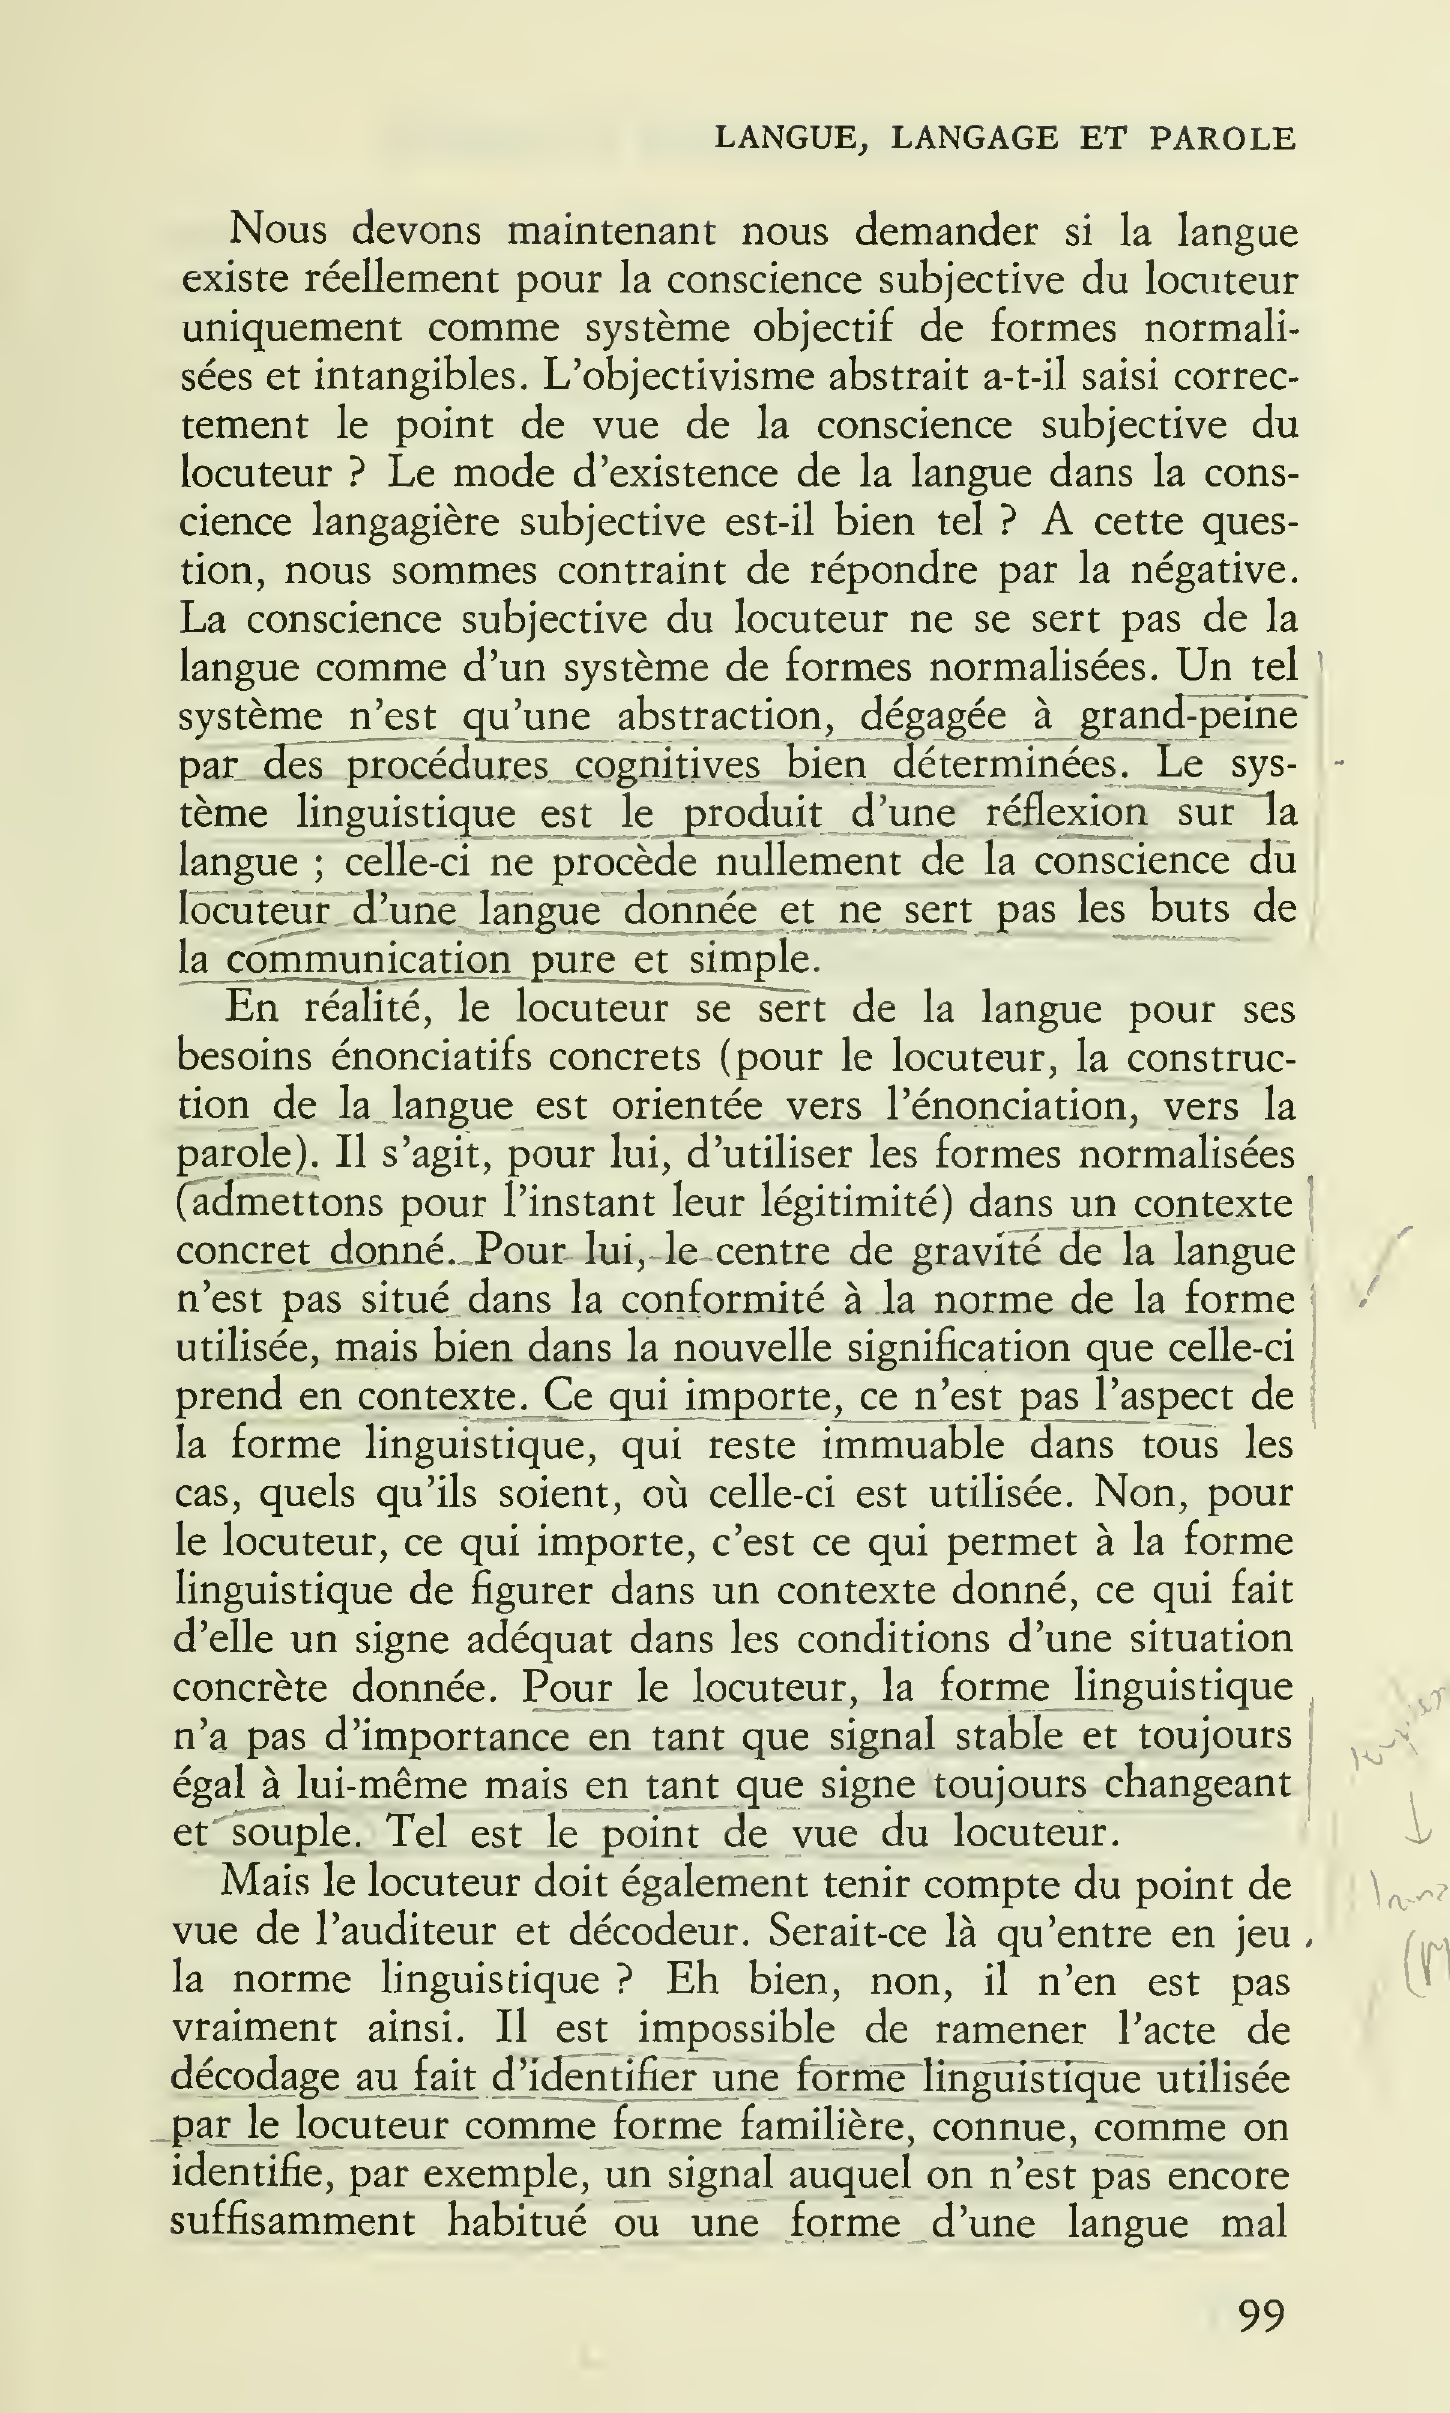 LANGUE, LANGAGE ET PAROLE
Nous devons maintenant nous demander si la langue
existe réellement pour la conscience subjective du locuteur
uniquement comme système objectif de formes normali-
sées et intangibles. L'objectivisme abstrait a-t-il saisi correc-
tement le point de vue de la conscience subjective du
locuteur ? Le mode d'existence de la langue dans la cons-
cience langagière subjective est-il bien tel ? A cette ques-
tion, nous sommes contraint de répondre par la négative.
La conscience subjective du locuteur ne se sert pas de la
langue comme d'un système de formes normalisées. Un tel
système n'est qu'une abstraction, dégagée à grand-peine
par des procédures cognitives bien déterminées. Le sys-
tème linguistique est le produit d'une réflexion sur la
langue ; celle-ci ne procède nullement de la conscience du
locuteur d'une langue donnée et ne sert pas les buts de
la communication pure et simple.
En réalité, le locuteur se sert de la langue pour ses
besoins énonciatifs concrets (pour le locuteur, la construc-
tion de la langue est orientée vers l'énonciation, vers la
parole). Il s'agit, pour lui, d'utiliser les formes normalisées
(admettons pour l'instant leur légitimité) dans un contexte
concret donné. Pour lui, le centre de gravité de la langue
n'est pas situé dans la conformité à la norme de la forme
utilisée, mais bien dans la nouvelle signification que celle-ci
prend en contexte. Ce qui importe, ce n'est pas l'aspect de
la forme linguistique, qui reste immuable dans tous les
cas, quels qu'ils soient, où celle-ci est utilisée. Non, pour
le locuteur, ce qui importe, c'est ce qui permet à la forme
linguistique de figurer dans un contexte donné, ce qui fait
d'elle un signe adéquat dans les conditions d'une situation
concrète donnée. Pour le locuteur, la forme linguistique
n'a pas d'importance en tant que signal stable et toujours
égal à lui-même mais en tant que signe toujours changeant
et souple. Tel est le point de vue du locuteur.
Mais le locuteur doit également tenir compte du point de
vue de l'auditeur et décodeur. Serait-ce là qu'entre en jeu
la norme linguistique ? Eh bien, non, il n'en est pas
vraiment ainsi. Il est impossible de ramener l'acte de
décodage au fait d'identifier une forme linguistique utilisée
par le locuteur comme forme familière, connue, comme on
identifie, par exemple, un signal auquel on n'est pas encore
suffisamment habitué ou une forme d'une langue mal
99